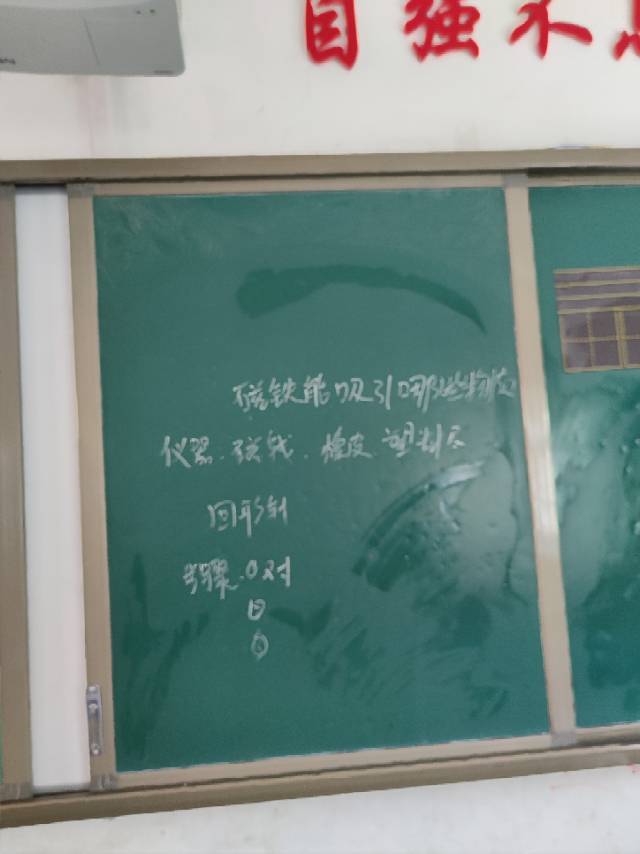 自强不息
磁铁能吸引哪些物质
仪器.磁铁.橡皮.塑料尺
回形针
步骤.①对
②
③